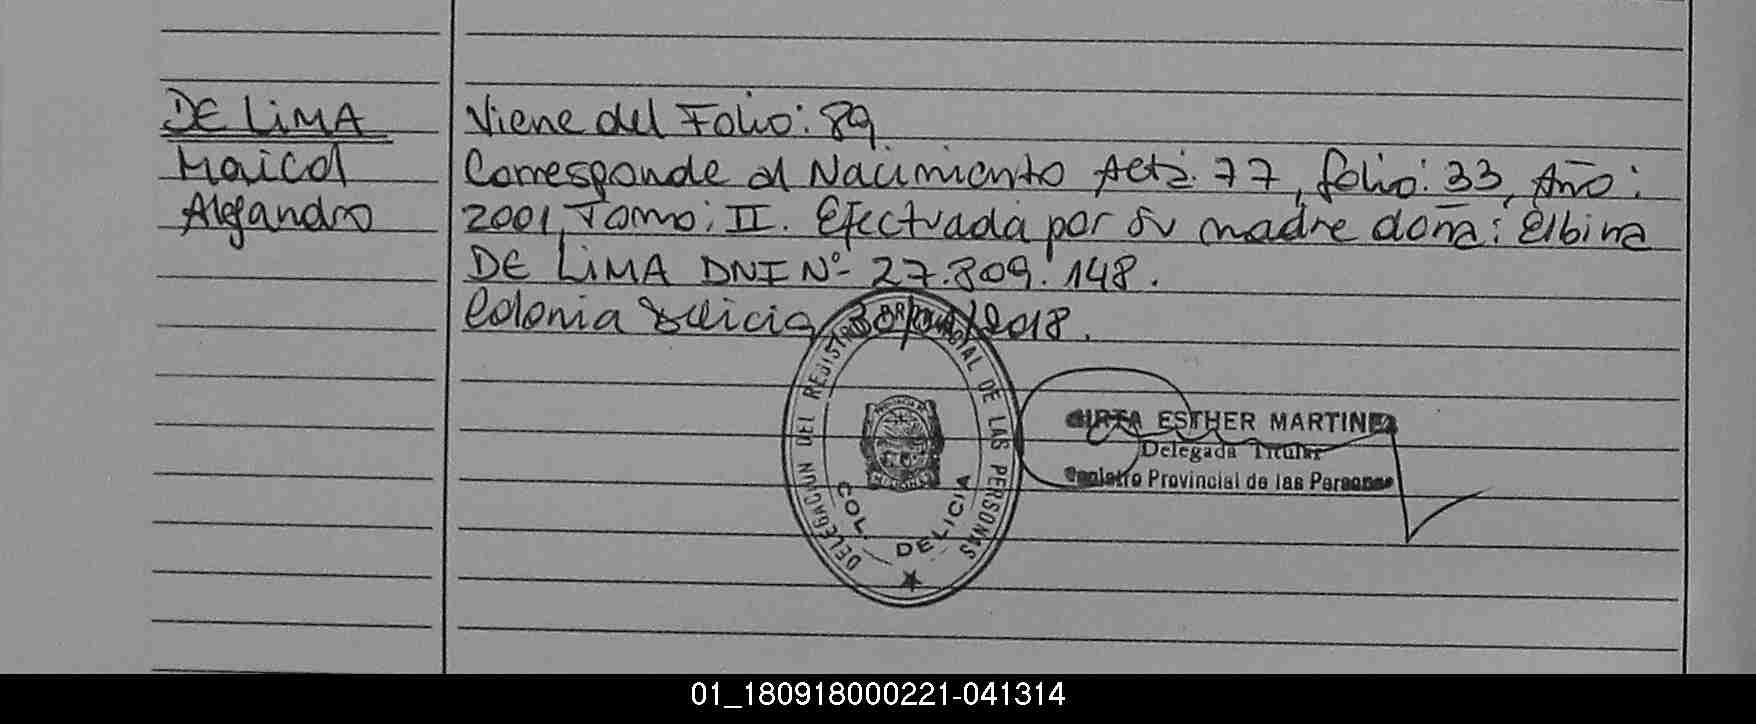 DE LIMA
Maicol
Alejandro
Viene del Folio: 89
Corresponde al Nacimiento Acta: 77, folio: 33, Año:
2001, Tomo: II. Efectuada por su madre doña: Elbira
DE LIMA DNI Nº 27.809.148.
Colonia Delicia, 30/ /2018.
DELEGACION DEL REGISTRO PROVINCIAL DE LAS PERSONAS
COL. DELICIA
ESTHER MARTINEZ
Delegada Titular
Registro Provincial de las Personas
01_180918000221-041314